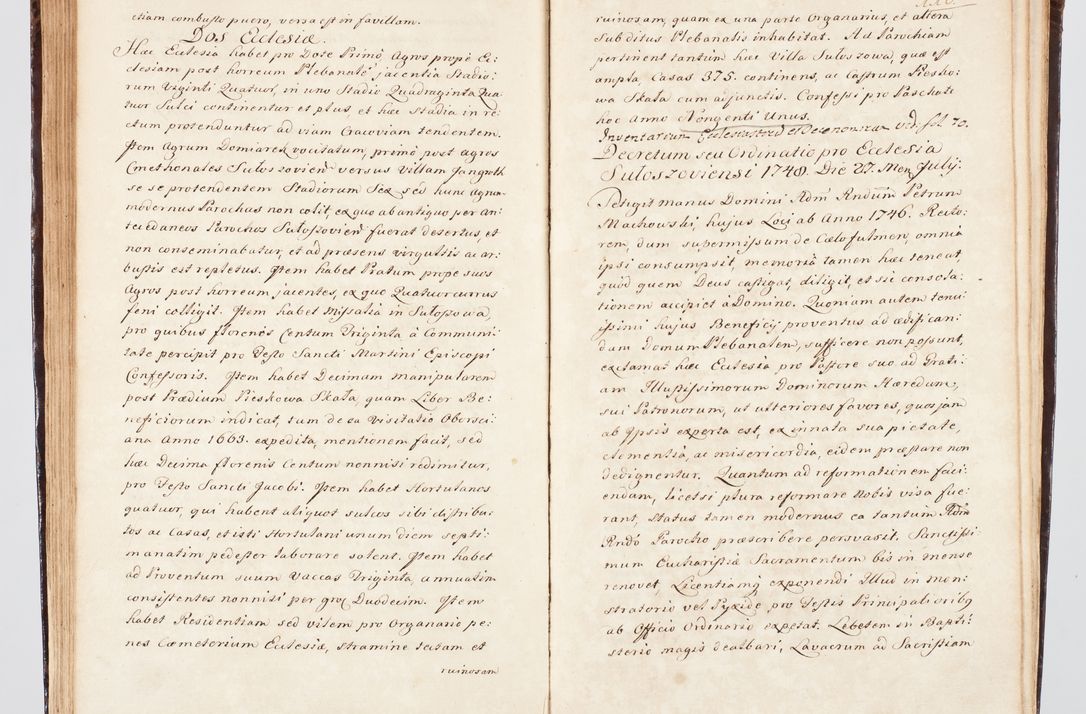 etiam combusto puero, versa est in favillam.
Dos Ecclesiæ.
Hæc Ecclesia habet pro Dote Primò Agros propè Ec:
clesiam post horreum Plebanale jacentia Stadio:
rum Viginti Quatuor, in uno Stadio Quadraginta Qua
tuor Sulci continentur et plus, et hæc Stadia in re:
ctum protenduntur ad viam Cracoviam tendentem.
Item Agrum Domiarek vocitatum, primò post agros
Cmethonales Suloszovien̄ versus Villam Jangroth
se se protendentem Stadiorum Sex sed hunc agrum
modernus Parochus non colit, ex quo ab antiquo per An:
tecedaneos Parochos Suloszovien̄ fuerat desertus, et
non conseminabatur, et ad præsens virgultis ac ar:
bustis est repletus. Item habet Pratum prope suos
Agros post horreum jacentes, ex quo Quatuor currus
feni colligit. Item habet Missalia in Suloszowa,
pro quibus florenos Centum Triginta à Communi:
tate percipit pro Festo Sancti Martini Episcopi
Confessoris. Item habet Decimam manipularem
post Prædium Pieskowa Skała, quam Liber Be:
neficiorum indicat, tum de ea Visitatio Obersci:
ana Anno 1663. expedita, mentionem facit, sed
hæc Decima florenis Centum nonnisi redimitur,
pro Festo Sancti Jacobi. Item habet Hortulanos
quatuor, qui habent aliquot sulcos sibi distribu:
tos ac Casas, et isti Hortulani unum diem septi:
manatim pedester laborare solent. Item habet
ad Proventum suum Vaccas Triginta, annuatim
consistentes nonnisi per gros Duodecim. Item
habet Residentiam sed vilem pro Organario pe:
nes Cæmeterium Ecclesiæ, stramine tectam et
ruinosam
ruinosam, quam ex una parte Organarius, et altera
Subditus Plebanalis inhabitat. Ad Parochiam
pertinent tantum hæc Villa Suloszowa, quæ est
ampla, Casas 375. continens, ac Castrum Piesko:
wa Skała cum adjunctis. Confessi pro Paschate
hoc Anno Nongenti Unus.
Inventarium Ecclesiasticæ et Oeconomicæ vid. fol. 70.
Decretum seu Ordinatio pro Ecclesia
Suloszoviensi 1748. Die 27. Men. Julij.
Tetigit manus Domini Adm̄ Rndum̄ Petrum
Machowski, hujus Loci ab Anno 1746. Recto:
rem, dum supermissum de Cælo fulmen, omnia
ipsi consumpsit, memoriâ tamen hæc teneat,
quòd quem Deus castigat, diligit, et sic consola:
tionem accipiet à Domino. Quoniam autem tenui:
ssimi hujus Beneficij proventus ad ædifican:
dam Domum Plebanalem, sufficere non possunt,
exclamat hæc Ecclesia pro Pastore suo ad Grati:
am Illustissimorum Dominorum Hæredum,
sui Patronorum, ut ulteriores favores, quos jam
ab Ipsis experta est, ex innata sua pietate,
clementiâ, ac misericordia, eidem præstare non
dedignentur. Quantum ad reformationem faci:
endam, licet si plura reformare Nobis visa fue:
rant, Status tamen modernus ea tantum Adm̄
Rndo Parocho præscribere persvasit. Sanctissi:
mum Eucharistiæ Sacramentum bis in mense
renovet, Licentiamq exponendi Illud in mon:
stratorio vel Pyxide pro Festis Principalioribq
ab Officio Ordinario expetat. Lebetem in Bapti:
sterio magis dealbari, Lavacrum ad Sacristiam